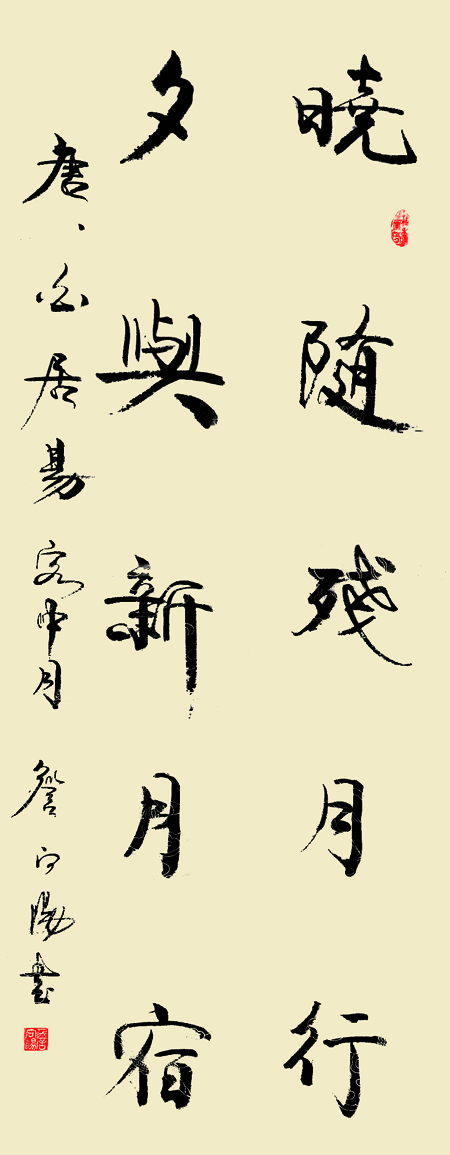 曉隨残月行
夕與新月宿
唐、白居易客中月 詹向陽書